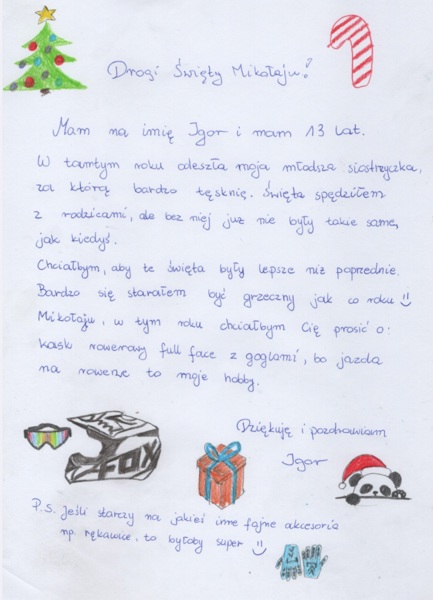 Drogi Święty Mikołaju!
Mam na imię Igor i mam 13 lat.
W tamtym roku odeszła moja młodsza siostrzyczka,
za którą bardzo tęsknię. Święta spędziłem
z rodzicami, ale bez niej już nie były takie same,
jak kiedyś.
Chciałbym, aby te święta były lepsze niż poprzednie.
Bardzo się starałem być grzeczny jak co roku :)
Mikołaju, w tym roku chciałbym Cię prosić o:
kask rowerowy full face z goglami, bo jazda
na rowerze to moje hobby.
Dziękuję i pozdrawiam
Igor
FOX
P.S. Jeśli starczy na jakieś inne fajne akcesoria
np. rękawice, to byłoby super :)